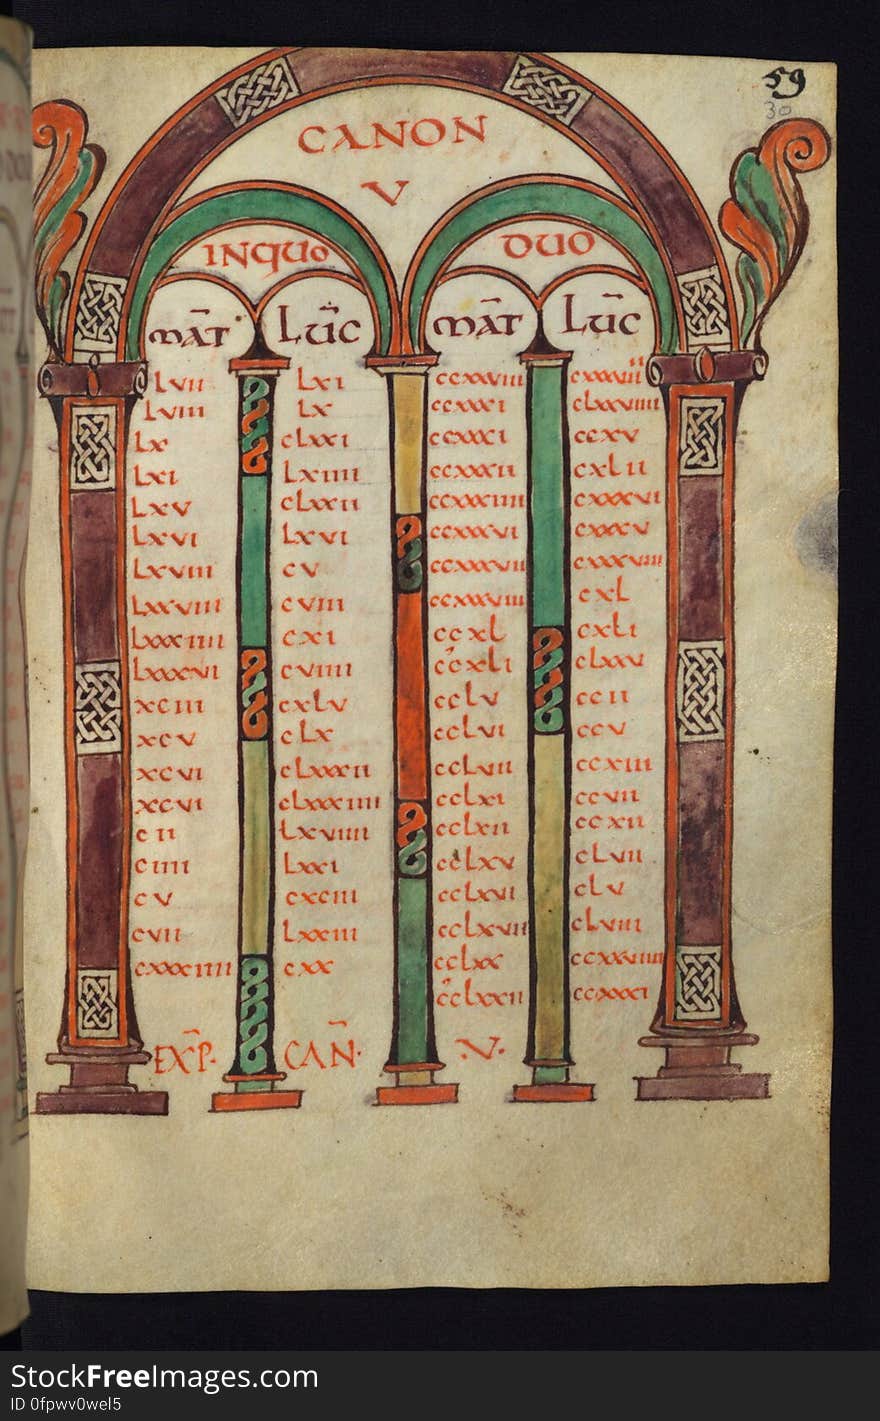 59
30
CANON
V
IN QUO DUO
MAT̄ LUC̄ MAT̄ LUC̄
LVII LXI CCXXVIII CXXXVII
LVIII LX CCXXXI CLXXVIIII
LX CLXXI CCXXXI CCXV
LXI LXIIII CCXXXII CXLII
LXV CLXXII CCXXXIIII CXXXVI
LXVI LXVI CCXXXVI CXXXV
LXVIII CV CCXXXVII CXXXVIII
LXXVIII CVIII CCXXXVIII CXL
LXXXIIII CXI CCXL CXLI
LXXXVI CVIIII CCXLI CLXXV
XCIII CXLV CCLV CCII
XCV CLX CCLVI CCV
XCVI CLXXXII CCLVIII CCXIII
XCVI CLXXXIIII CCLXI CCVII
CII LXVIIII CCLXII CCXII
CIIII LXXI CCLXV CLVII
CV CXCIII CCLXVI CLV
CVII LXXIII CCLXVII CLVIII
CXXXIIII CXX CCLXX CCXXVIIII
CCLXXII CCXXXI
EXP̄· CAN̄· ·V·
StockFreeImages.com
ID 0fpwv0wel5